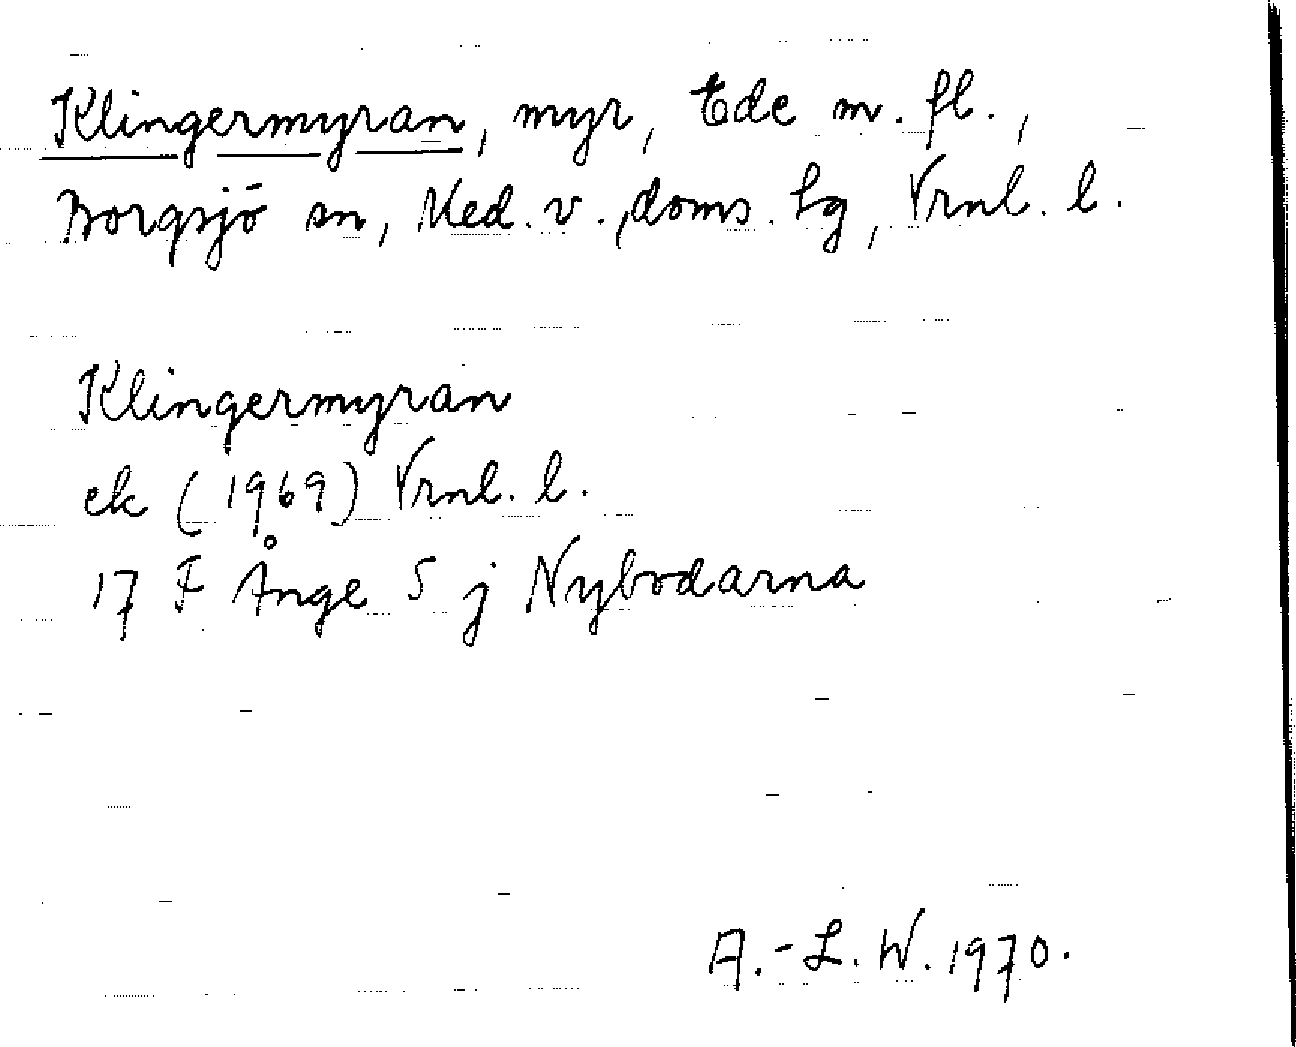 Klingermyran, myr, Ede m. fl.,
Borgsjö sn, Med. v. doms. tg, Vrnl. l.
Klingermyran
ek (1969) Vrnl. l.
17 F Ånge 5 j Nybodarna
A.-L. W. 1970.